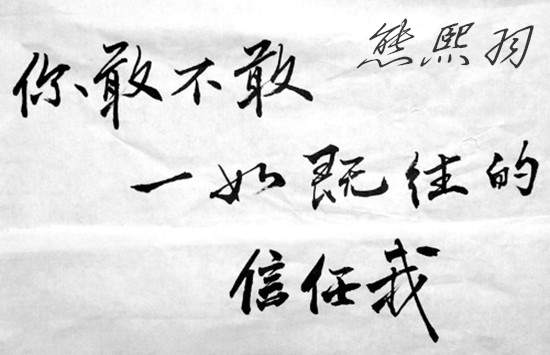 你敢不敢 熊熙羽
一如既往的
信任我